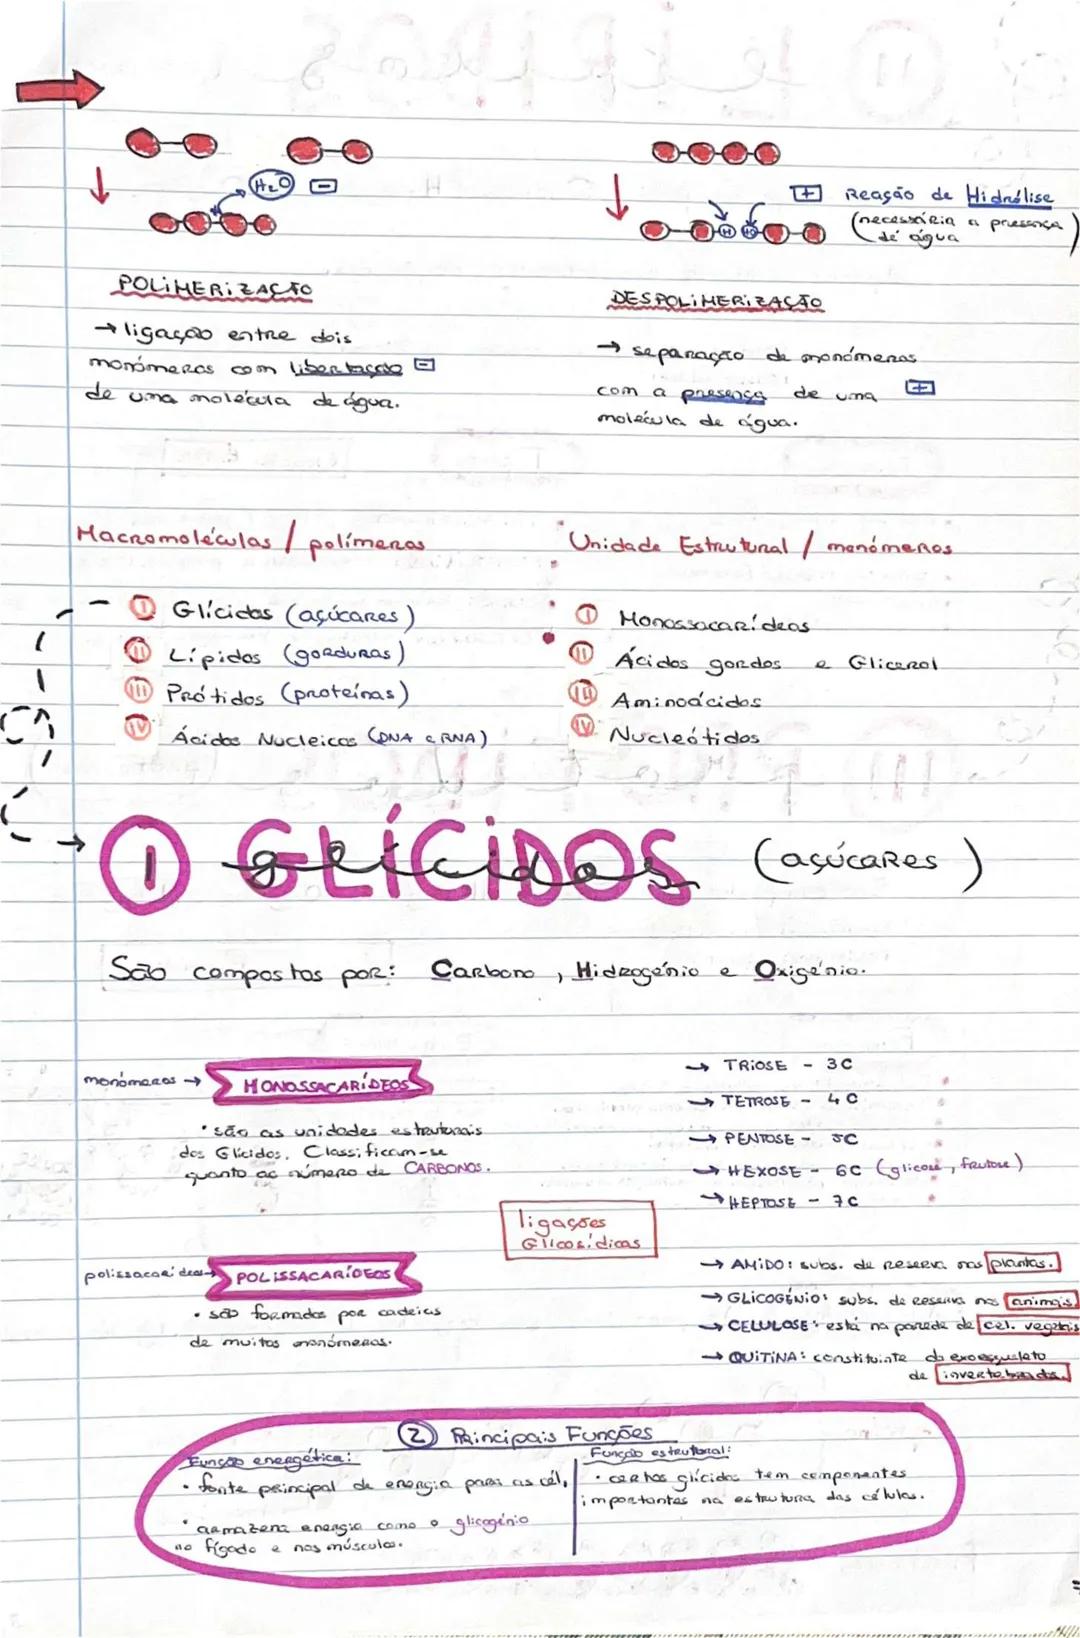 H₂O −
+ Reação de Hidrólise
(necessária a presença
de água)
H HO
POLIMERIZAÇÃO
→ ligação entre dois
monómeros com libertação −
de uma molécula de água.
DESPOLIMERIZAÇÃO
→ separação de monómeros
com a presença de uma +
molécula de água.
Macromoléculas / polímeros
I Glícidos (açúcares)
II Lípidos (gorduras)
III Prótidos (proteínas)
IV Ácidos Nucleicos (DNA e RNA)
Unidade Estrutural / monómeros
I Monossacarídeos
II Ácidos gordos e Glicerol
III Aminoácidos
IV Nucleótidos
1 GLÍCIDOS (açúcares)
glícidos
São compostos por: Carbono, Hidrogénio e Oxigénio.
monómeros → MONOSSACARÍDEOS
• são as unidades estruturais
dos Glícidos. Classificam-se
quanto ao número de CARBONOS.
→ TRIOSE - 3C
→ TETROSE - 4C
→ PENTOSE - 5C
→ HEXOSE - 6C (glicose, frutose)
→ HEPTOSE - 7C
ligações
Glicosídicas
polissacarídeos → POLISSACARÍDEOS
• são formados por cadeias
de muitos monómeros.
→ AMIDO: subs. de reserva nas plantas.
→ GLICOGÉNIO: subs. de reserva nos animais
→ CELULOSE: está na parede de cel. vegetais
→ QUITINA: constituinte do exoesqueleto
de invertebrados.
2 Principais Funções
Função energética:
• fonte principal de energia para as cél,
• armazena energia como o glicogénio
no fígado e nos músculos.
Função estrutural:
• certos glícidos tem componentes
importantes na estrutura das células.